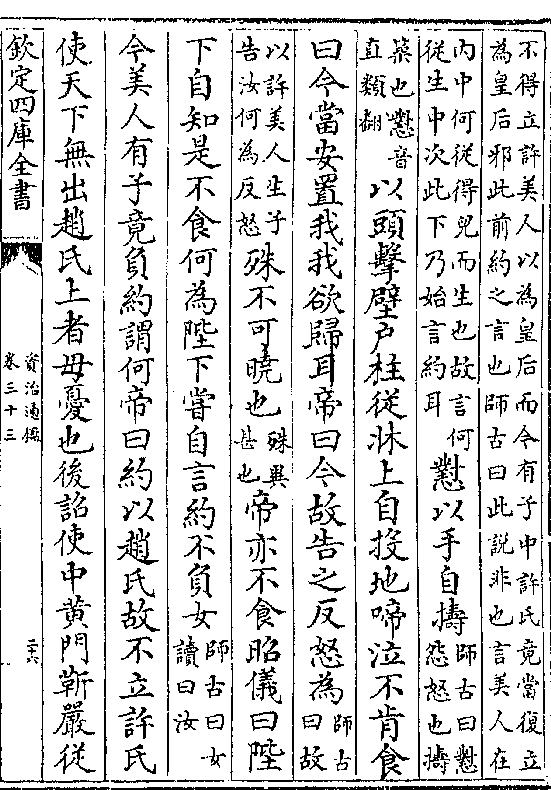 不得立許美人以為皇后而今有子中許氏竟當復立
為皇后邪此前約之言也師古曰此說非也言美人在
内中何從得兒而生也故言何
從生中次此下乃始言約耳
懟以手自擣
師古曰懟
怨怒也擣
築也懟音
直類翻
以頭擊壁户柱從牀上自投地啼泣不肯食
曰今當安置我我欲歸耳帝曰今故告之反怒為
師古
曰故
以許美人生子
告汝何為反怒
殊不可曉也
殊異
甚也
帝亦不食昭儀曰陛
下自知是不食何為陛下嘗自言約不負女
師古曰女
讀曰汝
今美人有子竟負約謂何帝曰約以趙氏故不立許氏
使天下無出趙氏上者毋憂也後詔使中黄門靳嚴從
欽定四庫全書
資治通鑑
卷三十三
二六